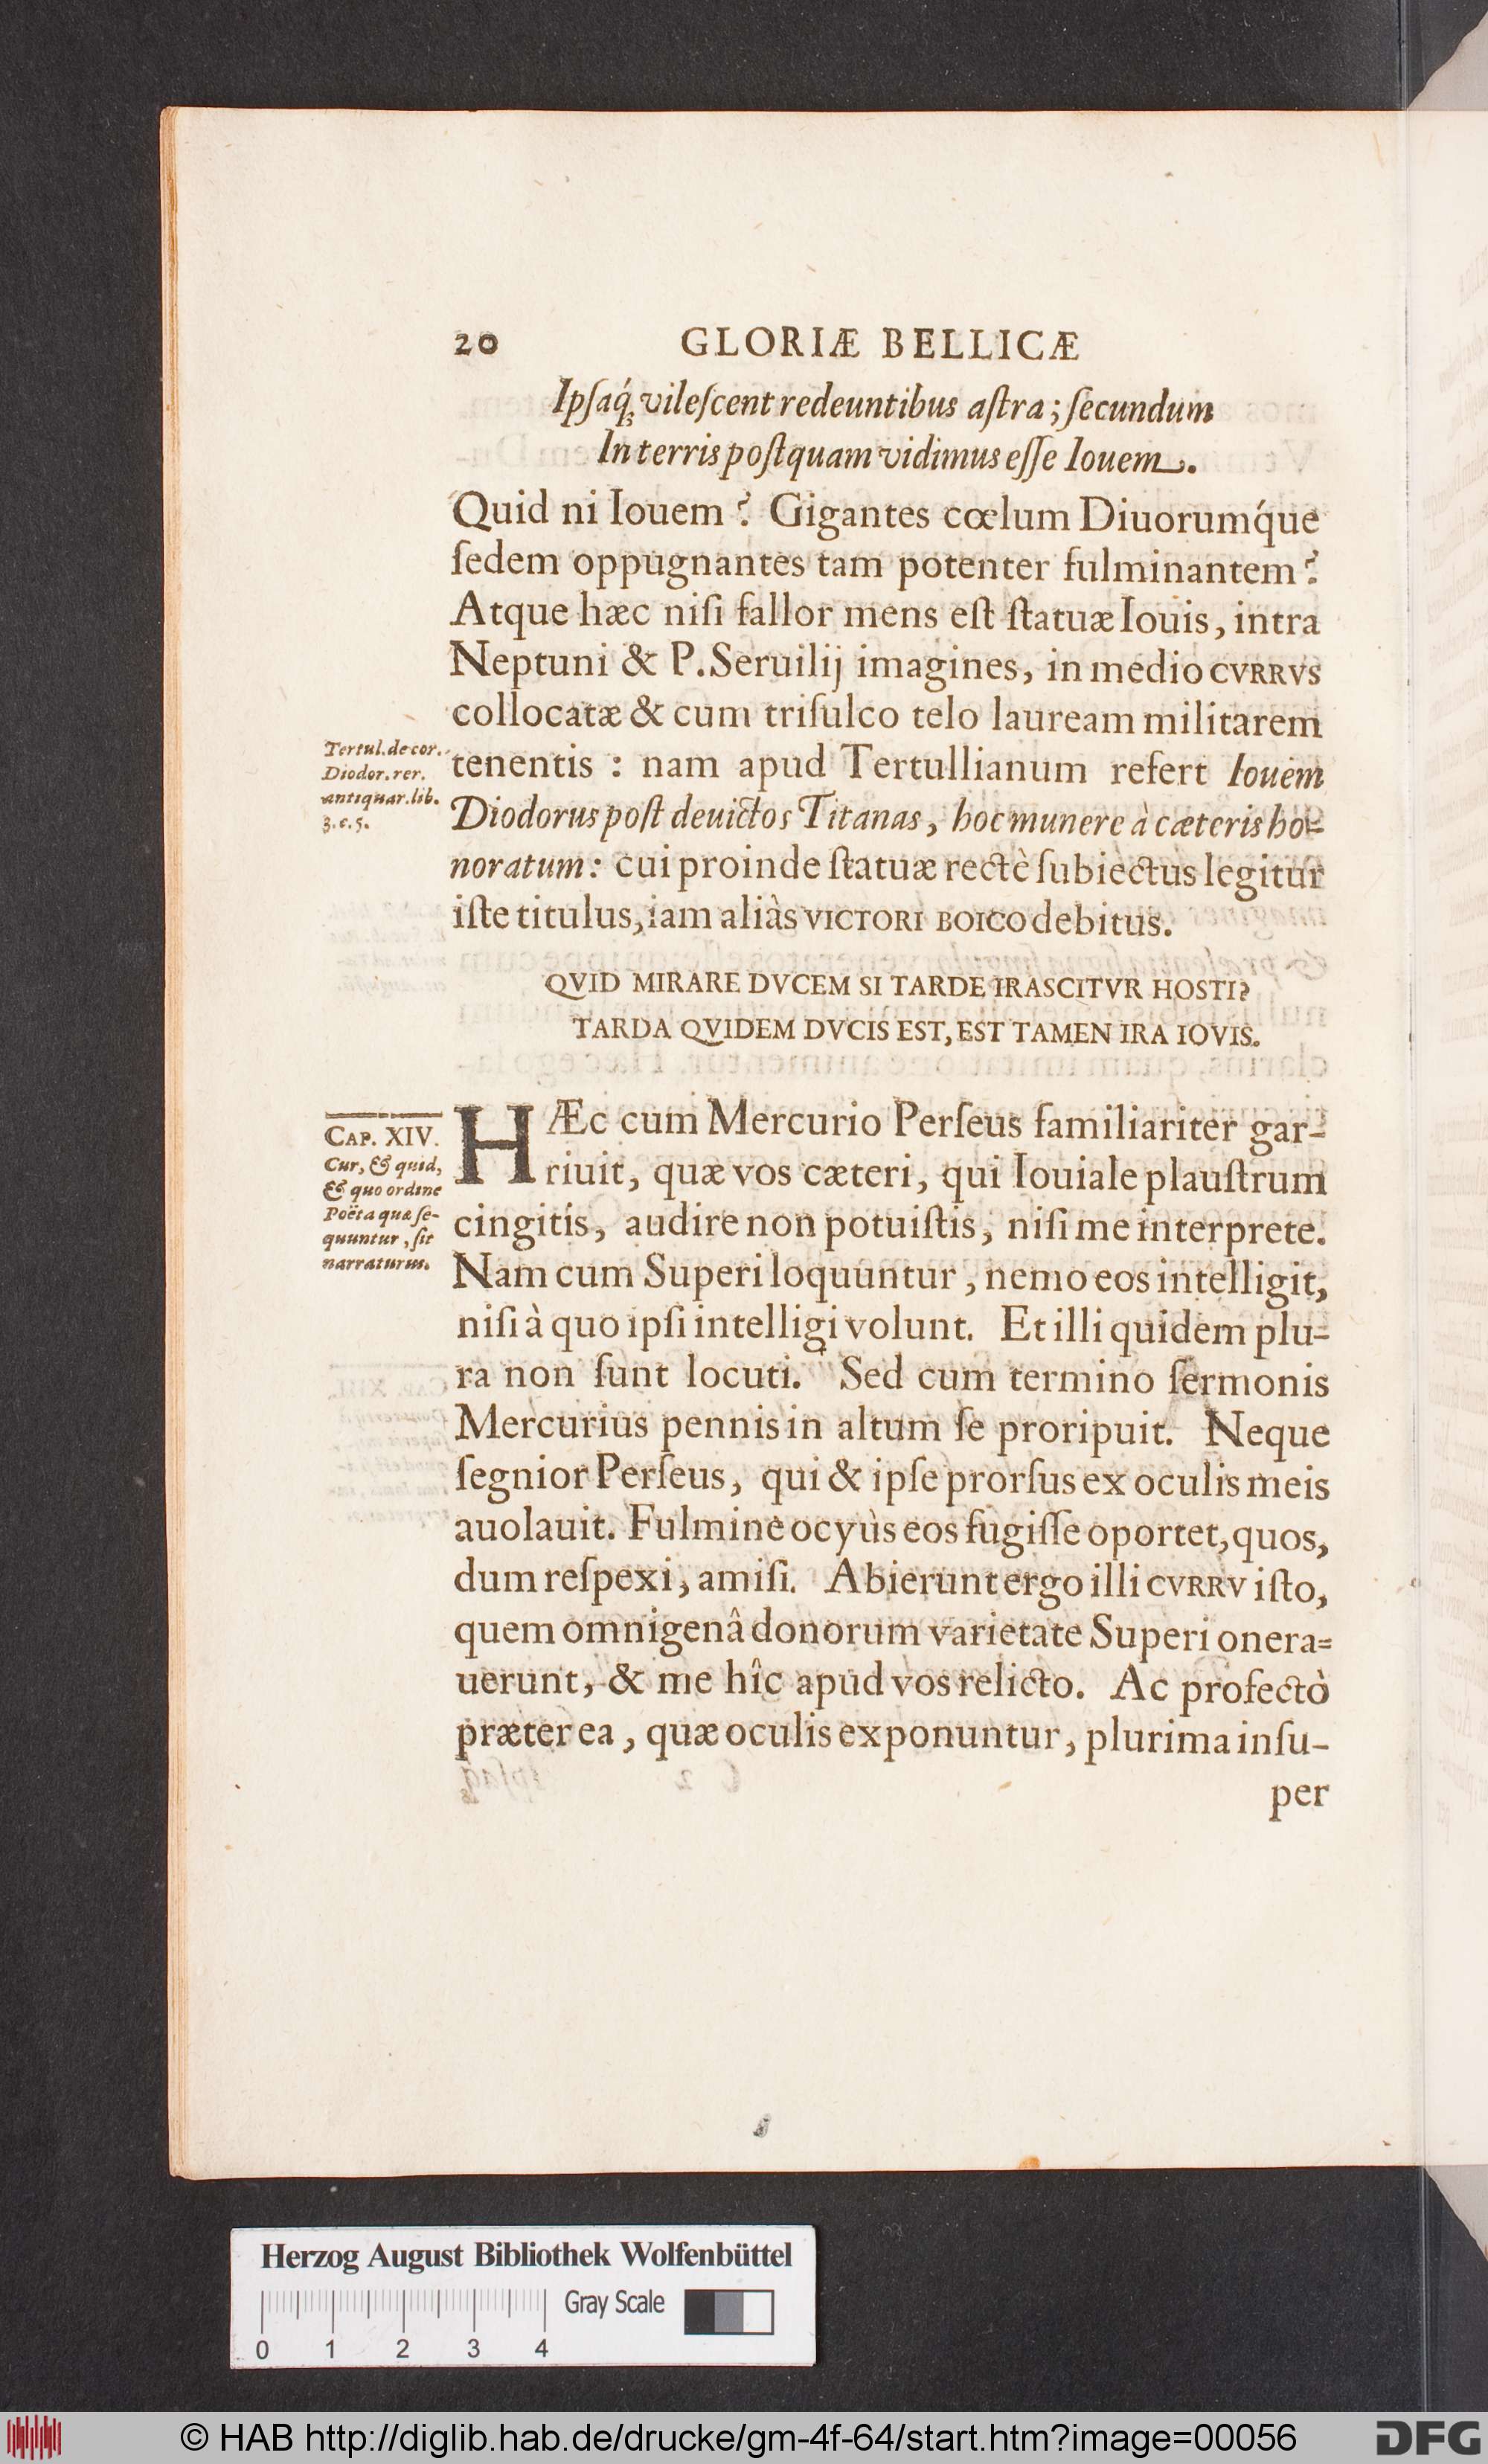 20 GLORIÆ BELLICÆ
Ipſaq́; vileſcent redeuntibus aſtra; ſecundum
In terris poſtquam vidimus eſſe Iouem.
Quid ni Iouem? Gigantes cœlum Diuorumq́ue
ſedem oppugnantes tam potenter fulminantem?
Atque hæc niſi fallor mens eſt ſtatuæ Iouis, intra
Neptuni & P. Seruilij imagines, in medio CVRRVS
collocatæ & cum triſulco telo lauream militarem
Tertul. de cor.
Diodor. rer.
antiquar. lib.
3. c. 5.
tenentis : nam apud Tertullianum refert Iouem
Diodorus poſt deuictos Titanas, hoc munere à cæteris ho-
noratum: cui proinde ſtatuæ rectè ſubiectus legitur
iſte titulus, iam aliàs VICTORI BOICO debitus.
QVID MIRARE DVCEM SI TARDE IRASCITVR HOSTI?
TARDA QVIDEM DVCIS EST, EST TAMEN IRA IOVIS.
CAP. XIV.
Cur, & quid,
& quo ordine
Poëta quæ ſe-
quuntur, ſit
narraturus.
HÆc cum Mercurio Perſeus familiariter gar-
riuit, quæ vos cæteri, qui Iouiale plauſtrum
cingitis, audire non potuiſtis, niſi me interprete.
Nam cum Superi loquuntur, nemo eos intelligit,
niſi à quo ipſi intelligi volunt. Et illi quidem plu-
ra non ſunt locuti. Sed cum termino ſermonis
Mercurius pennis in altum ſe proripuit. Neque
ſegnior Perſeus, qui & ipſe prorſus ex oculis meis
auolauit. Fulmine ocyùs eos fugiſſe oportet, quos,
dum reſpexi, amiſi. Abierunt ergo illi CVRRV iſto,
quem omnigenâ donorum varietate Superi onera-
uerunt, & me hîc apud vos relicto. Ac profectò
præter ea, quæ oculis exponuntur, plurima inſu-
per
Herzog August Bibliothek Wolfenbüttel
Gray Scale
0 1 2 3 4
© HAB http://diglib.hab.de/drucke/gm-4f-64/start.htm?image=00056
DFG